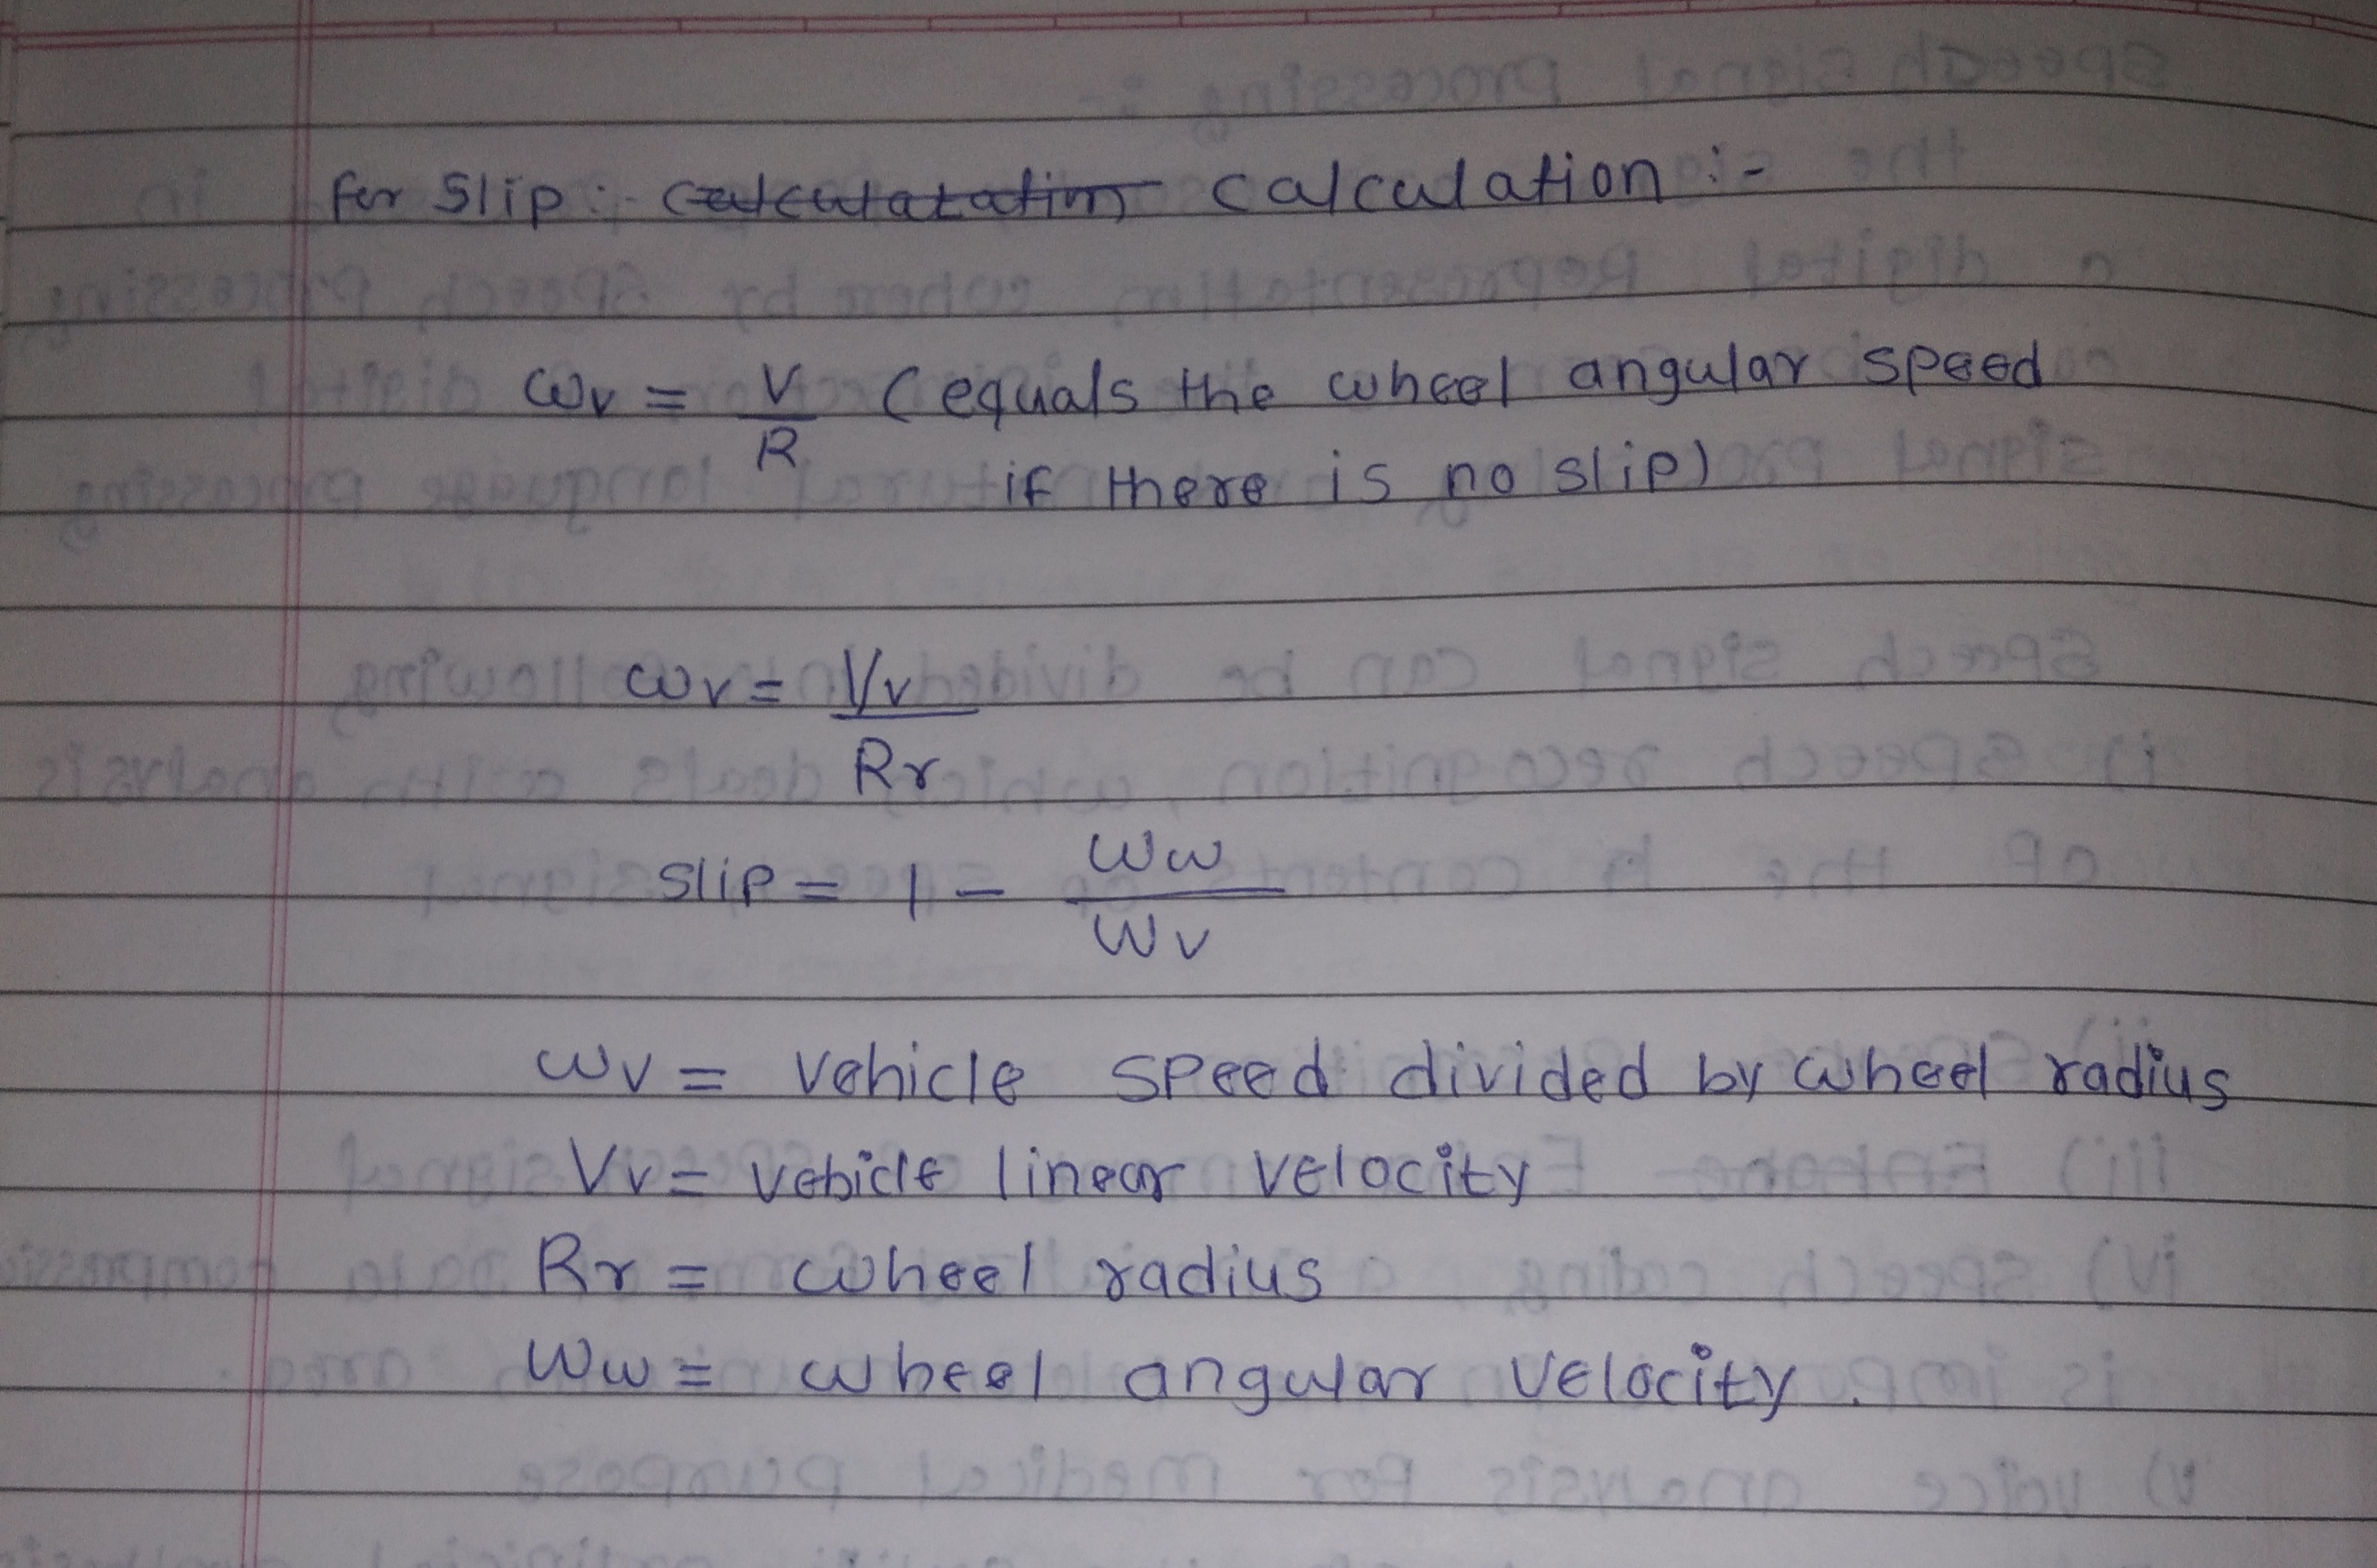 For Slip :- calculation :-
ωv = V/R (equals the wheel angular speed
if there is no slip)
ωv = Vv/Rr
slip = 1 - ωw/ωv
ωv = vehicle speed divided by wheel radius
Vv = vehicle linear velocity
Rr = wheel radius
ωw = wheel angular velocity.